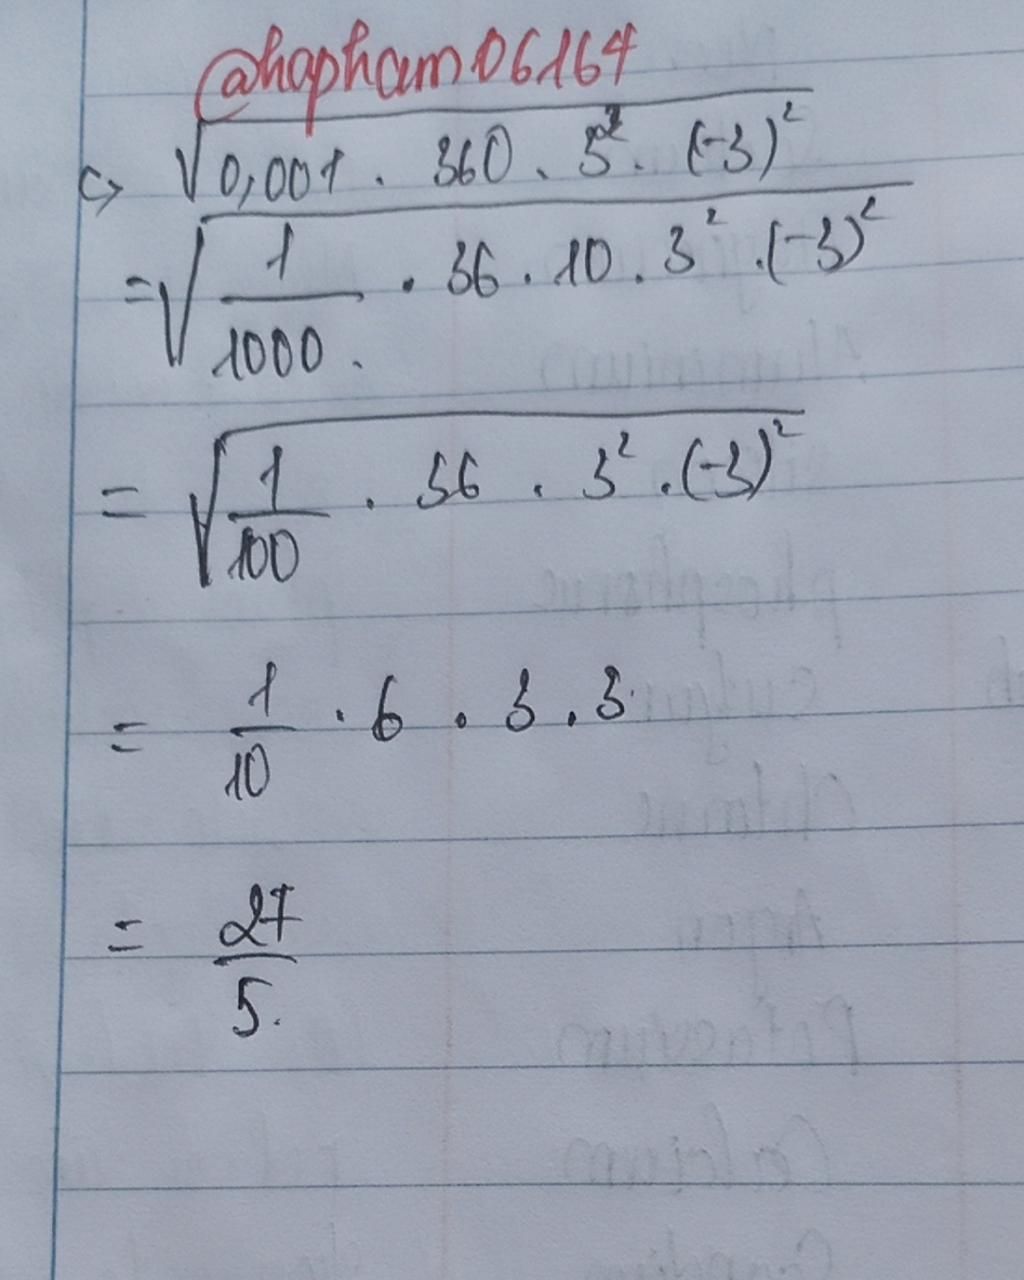 @hapham06164
c> √0,001 . 360 . 3² . (-3)²
= √1/1000 . 36 . 10 . 3² . (-3)²
= √1/100 . 36 . 3² . (-3)²
= 1/10 . 6 . 3 . 3
= 27/5.